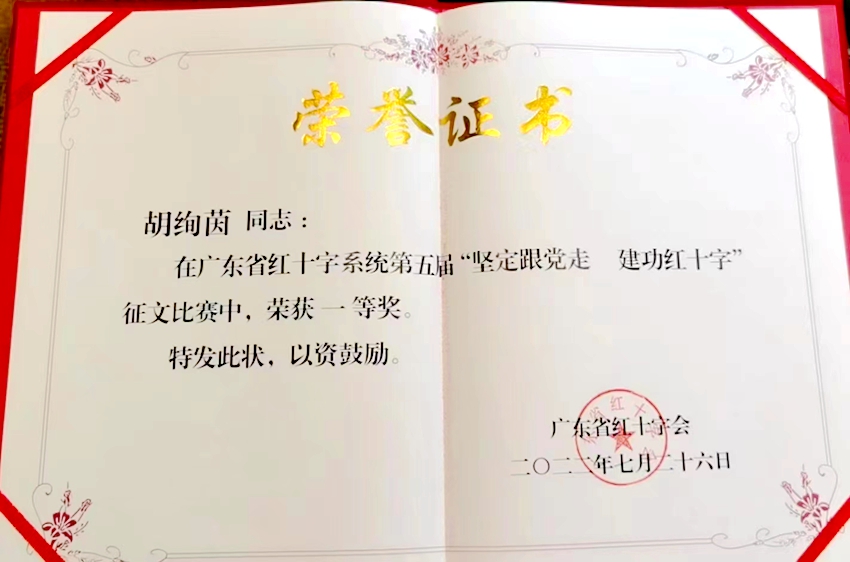 荣誉证书
胡绚茵 同志：
在广东省红十字系统第五届“坚定跟党走　建功红十字”
征文比赛中，荣获 一 等奖。
特发此状，以资鼓励。
广东省红十字会
二〇二二年七月二十六日